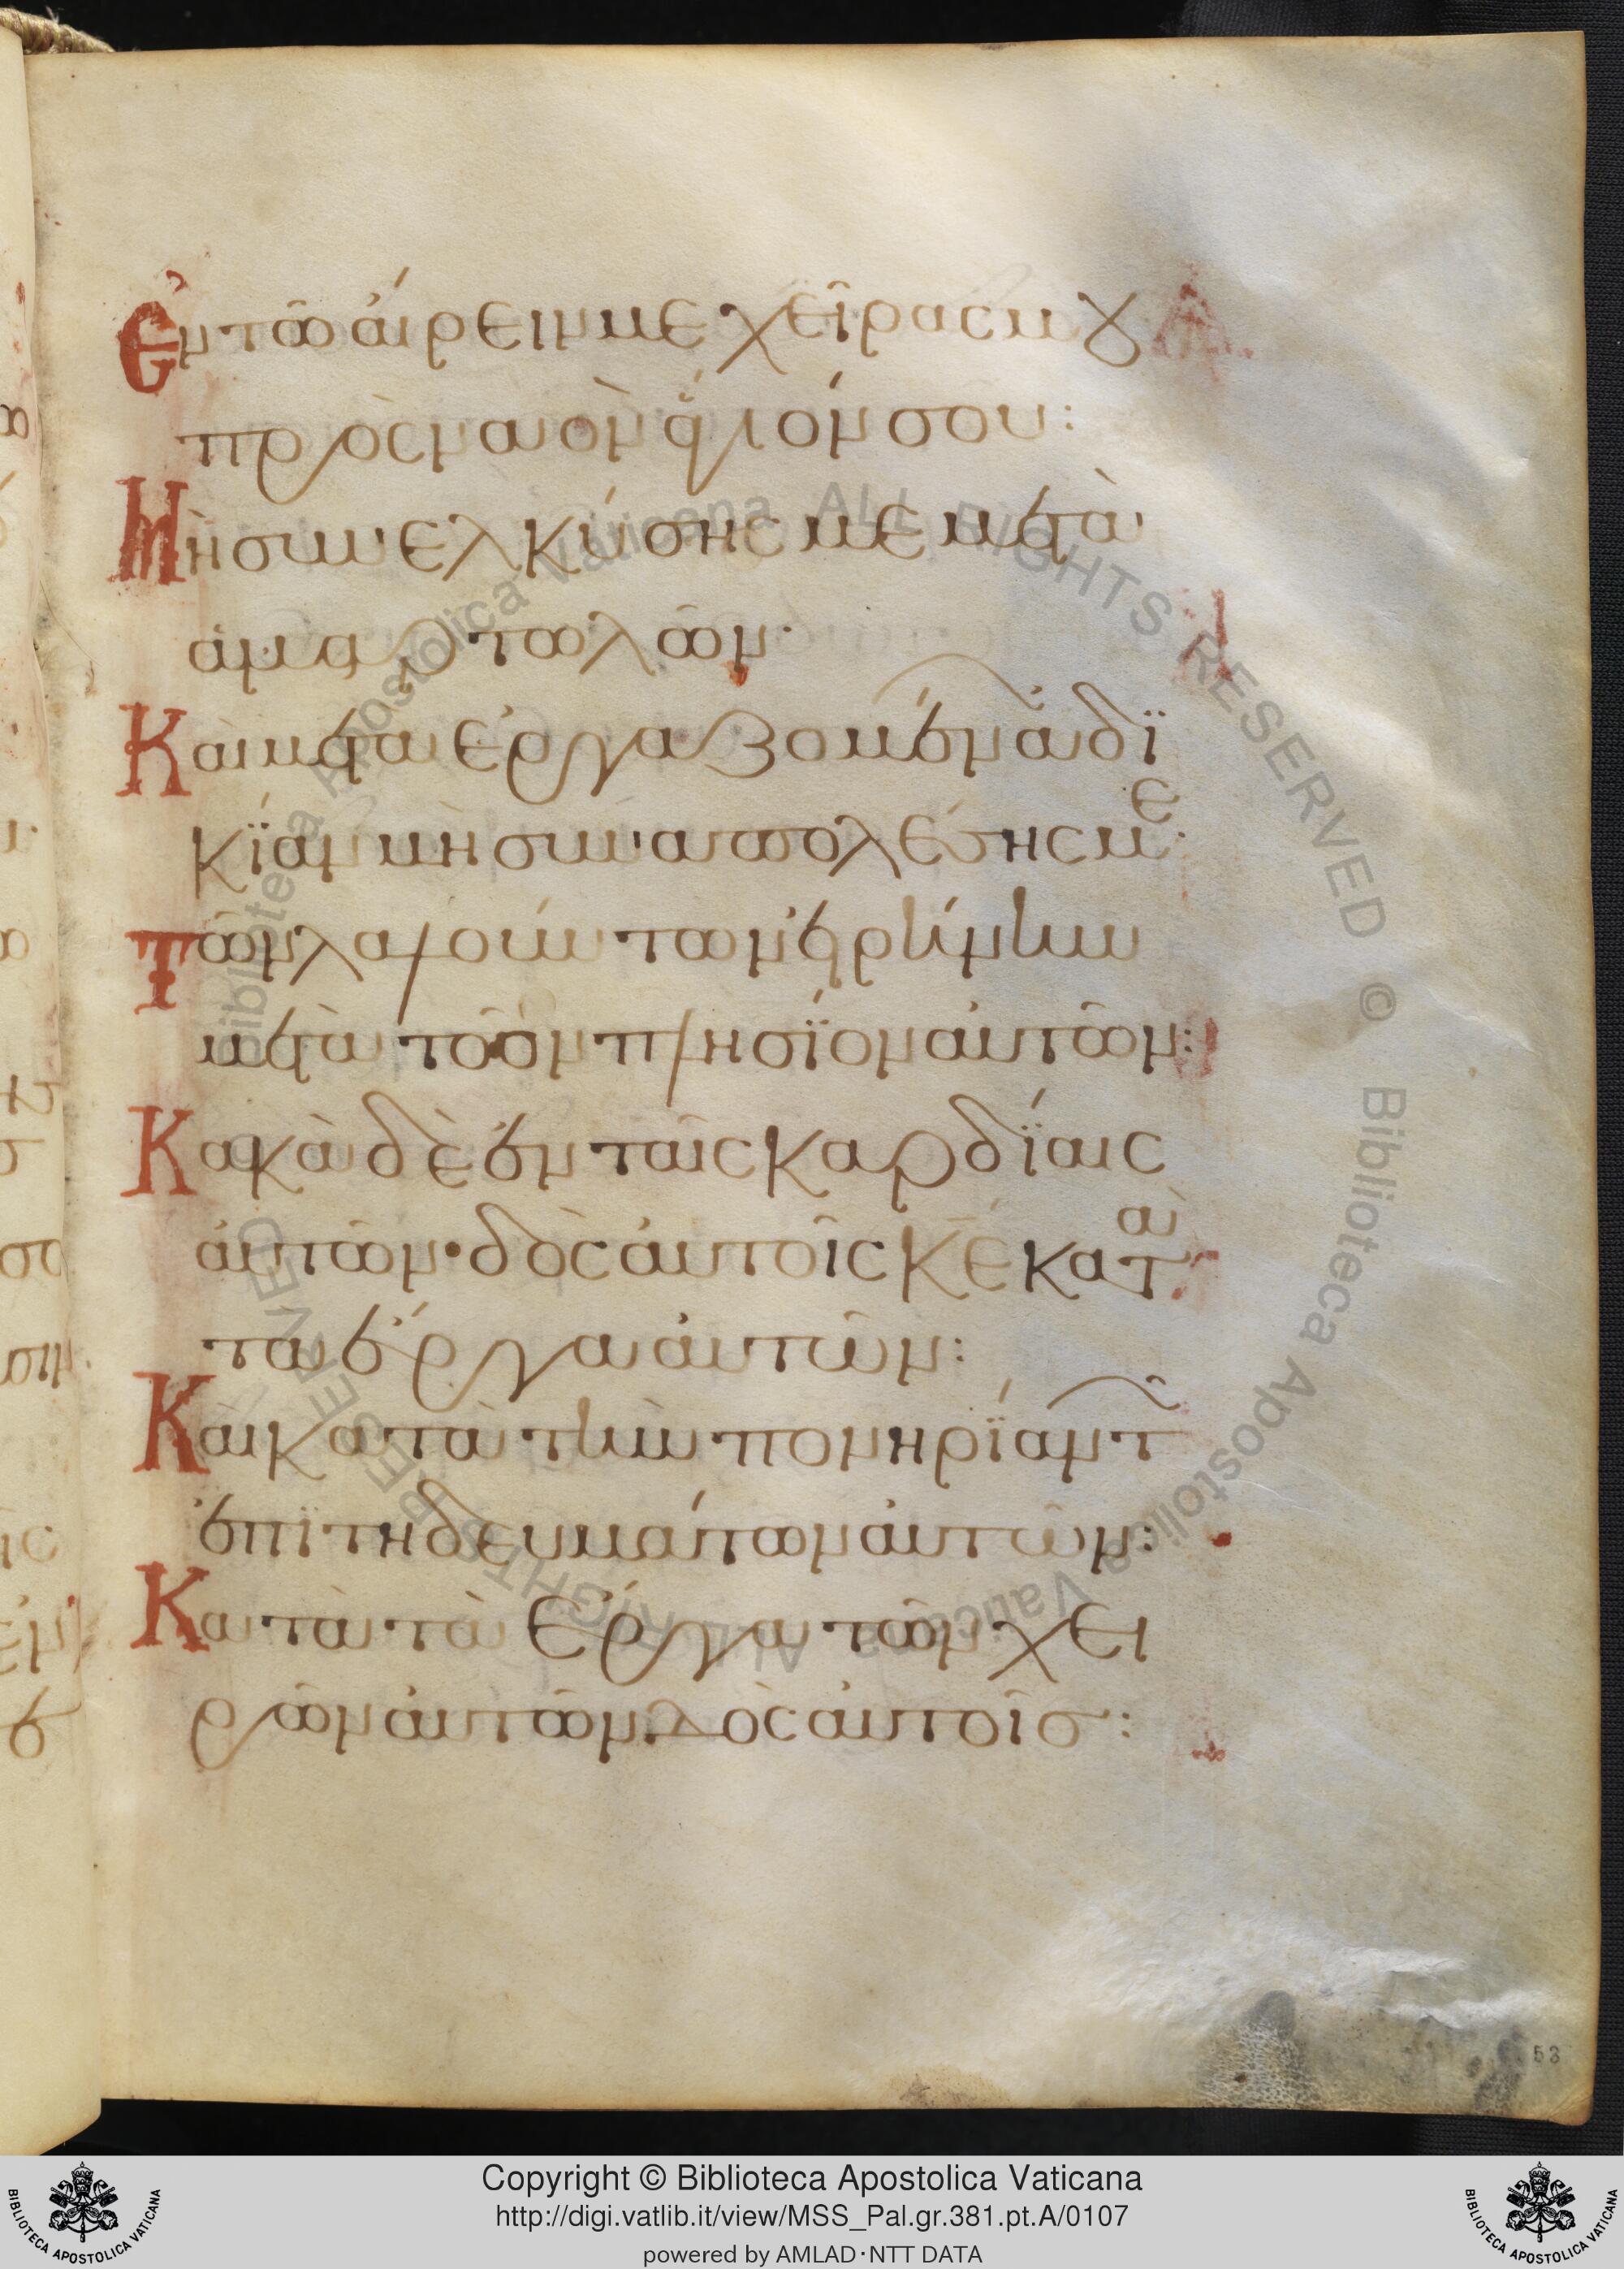 Ἐν τῶ ἄιρειν με χεῖρας μου
προς ναὸν ἅγιόν σου:
Μὴ συνελκύσης με μετὰ
ἁμαρτωλῶν·
Και μετα ἐργαζομένων ἀδϊ
κΐαν μὴ συναπολέσης με·
Τῶν λαλούντων εἰρήνην
μετὰ τοῦ πλησΐον αὐτῶν:
Κακὰ δὲ ἐν ταῖς καρδΐαις
αὐτῶν· δὸς αὐτοῖς κε κατὰ
τα ἔργα αὐτῶν:
Και κατὰ τὴν πονηρΐαν τῶν
ἐπϊτηδευμάτων αὐτῶν:
Κατὰ τὰ ἔργα τῶν χει
ρῶν αὐτῶν δὸς αὐτοῖς:
53
Copyright © Biblioteca Apostolica Vaticana
http://digi.vatlib.it/view/MSS_Pal.gr.381.pt.A/0107
powered by AMLAD·NTT DATA
BIBLIOTECA APOSTOLICA VATICANA
BIBLIOTECA APOSTOLICA VATICANA
Biblioteca Apostolica Vaticana ALL RIGHTS RESERVED © Biblioteca Apostolica Vaticana ALL RIGHTS RESERVED